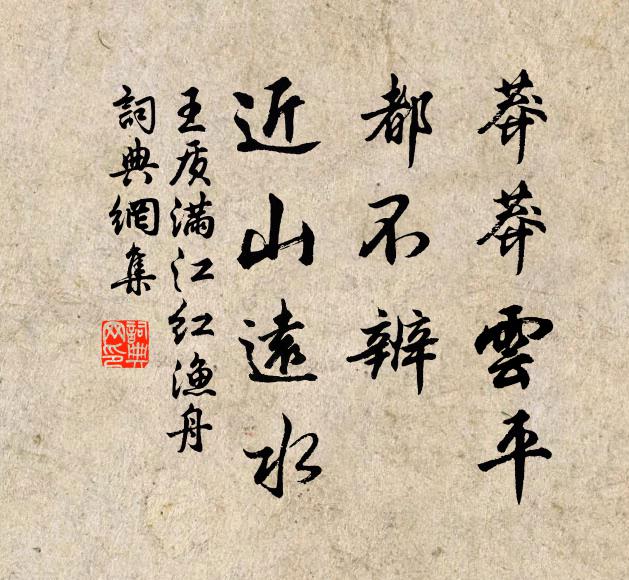 莽莽雲平
都不辨
近山遠水
王质滿江紅漁舟
詞典網集
詞典网印